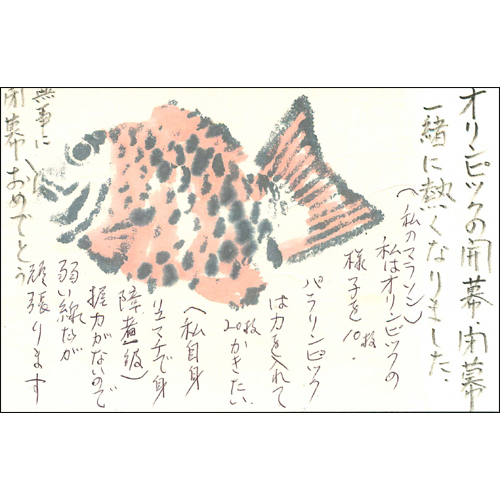 オリンピックの開幕・閉幕
一緒に熱くなりました.
(私のマラソン)
私はオリンピックの
様子を10枚.
パラリンピック
は力を入れて
20枚かきたい.
(私自身
リュマチで身
障者一級)
握力がないので
弱い線だが
頑張ります
無事に
閉幕おめでとう